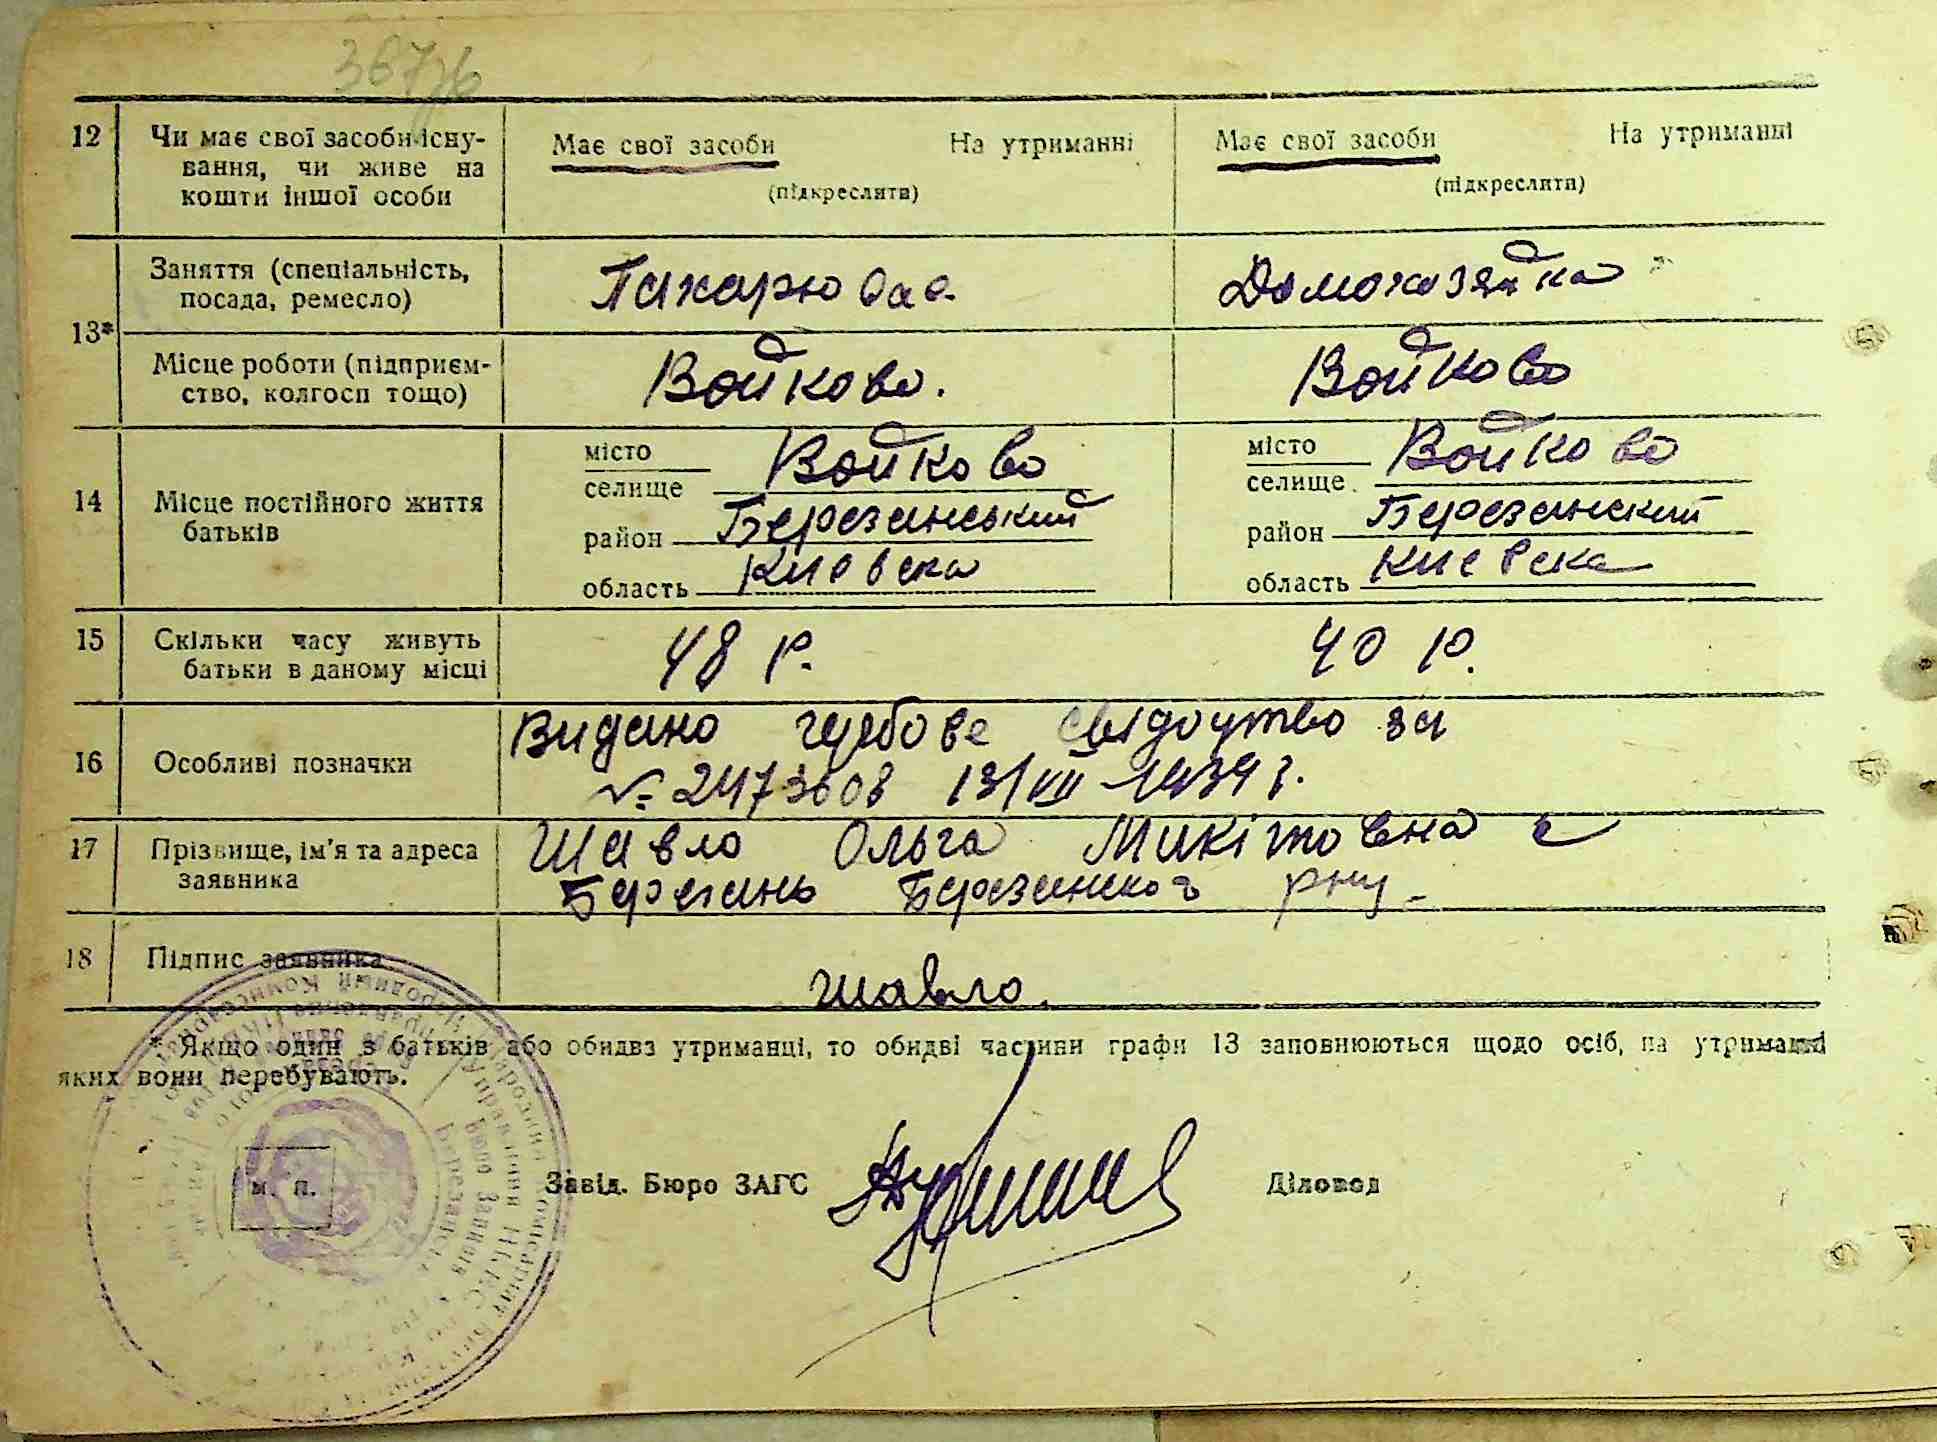 12 Чи має свої засоби існу-
вання, чи живе на
кошти іншої особи
Має свої засоби На утриманні
(підкреслити)
Має свої засоби На утриманні
(підкреслити)
13*
Заняття (спеціальність,
посада, ремесло)
Домохазяйка
Місце роботи (підприєм-
ство, колгосп тощо)
Войково.
Войково
14 Місце постійного життя
батьків
місто
селище Войково
район Березанський
область Киевска
місто
селище Войково
район Березанский
область Киевска
15 Скільки часу живуть
батьки в даному місці
48 р.
40 р.
16 Особливі позначки
Видано гербове свідоцтво за
№ 2473608 13/VII-1939 г.
17 Прізвище, ім'я та адреса
заявника
Шавло Ольга Микітовна с
Березань Березанског рну.
18 Підпис заявника
Шавло.
* Якщо один з батьків або обидва утриманці, то обидві частини графи 13 заповнюються щодо осіб, на утриманні
яких вони перебувають.
м. п.
Завід. Бюро ЗАГС
Діловод